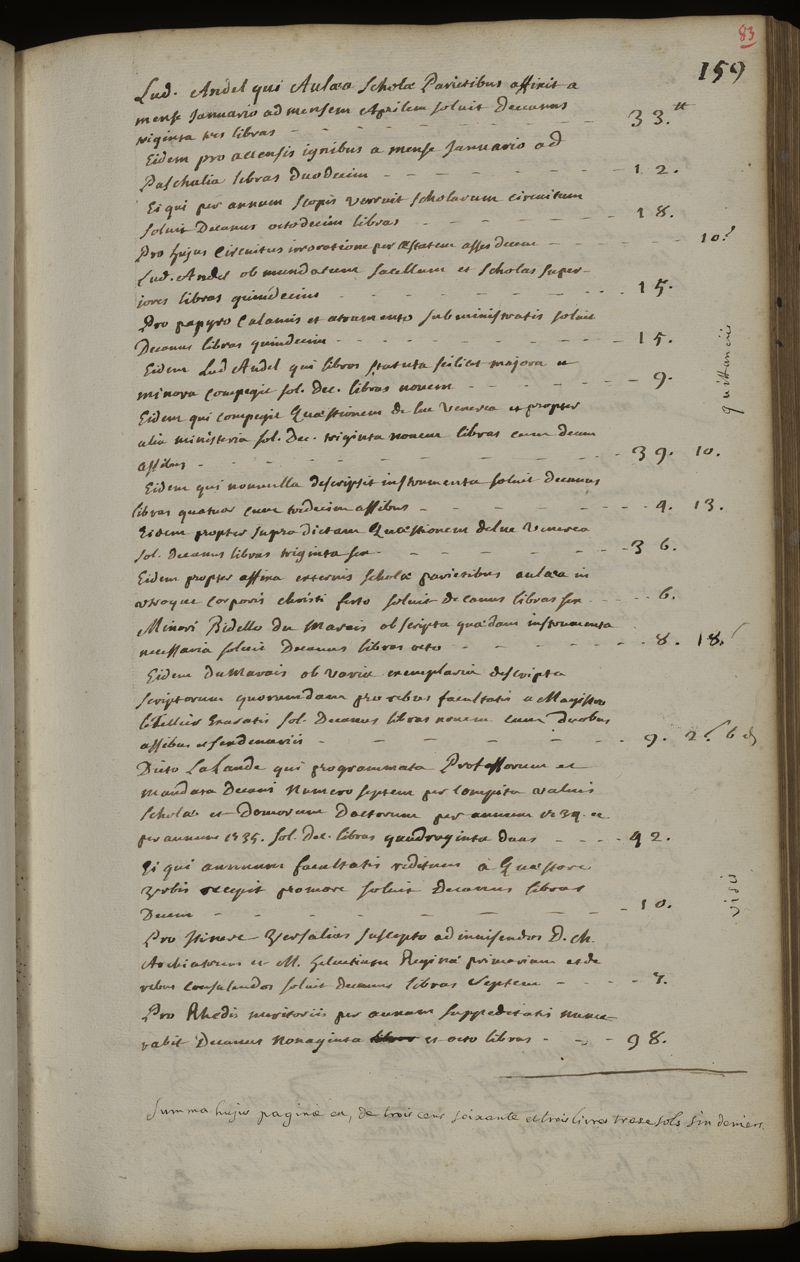 83
159
Lud. Andel qui Aulæa Scholæ Parietibus affixit a
mense Januario ad mensem Aprilem soluit Decanus
triginta tres libras - - - - - - - 33.tt
Eidem pro accensis ignibus a mense Januario ad
Paschalia libras duodecim - - - - - - 12.
Ei qui per annum scopis verrit scholarum circuitum
soluit Decanus octodecim libras - - - - - - 18.
Pro hujus circuitus irroratione per æstatem asses decem - - - - - 10.s
Lud. Andel ob mundatum sacellum et scholas super-
iores libras quindecim - - - - - - 15.
Pro papyro calamis et atramento subministratis soluit
Decanus libras quindecim - - - - - - 15.
Eidem Lud Andel qui libros statuta scilicet majora et
minora compegit sol. Dec. libras novem - - - - - 9.
Eidem qui compegit Quæstionem de lue Venerea et propter
alia ministeria sol. Dec. triginta novem libras cum decem
assibus - - - - - - - - 39. 10.
Eidem qui nonnulla descripsit instrumenta soluit decanus
libras quatuor cum tredecim assibus - - - - - - 4. 13.
Eidem propter supra dictam Quæstionem de lue Venerea
sol. Decanus libras triginta sex - - - - - - 36.
Eidem propter affixa externis scholæ parietibus aulæa in
utroque corporis christi festo soluit decanus libras sex - - - - 6.
Minori Bidello du Marais ob scripta quædam instrumenta
necessaria soluit Decanus libras octo - - - - - 8. 18.s
Eidem Du Marais ob varia exemplaria descripta
scriptorum quorumdam pro rebus facultatis a Magistro
libellis exaratis sol. Decanus libras novem cum duobus
assibus et sex denariis - - - - - - 9. 2.s 6 d
Dicto LaLande qui programmata Professorum et
mandata Decani numero septem per compita valvis
scholæ et Domorum Doctorum per annum 1734. et
per annum 1735. sol. Dec. libras quadraginta duas - - - - 42.
Ei qui annuum facultatis reditum a Quæstore
Urbis recepit promore soluit decanus libras
Decem - - - - - - - 10.
Pro Itinere Versalias suscepto ad invisendos D. M.
Archiatrum et M. Helvetium Reginæ primarium et de
rebus consulendos soluit decanus libras septem - - - - 7.
Pro Rhedis meritoriis per annum suppeditatis nume-
rabit Decanus nonaginta et octo libras - - - 98.
Summa hujus paginæ est, de trois cens soixante et trois livres treze sols six deniers.
quittanciis
visis